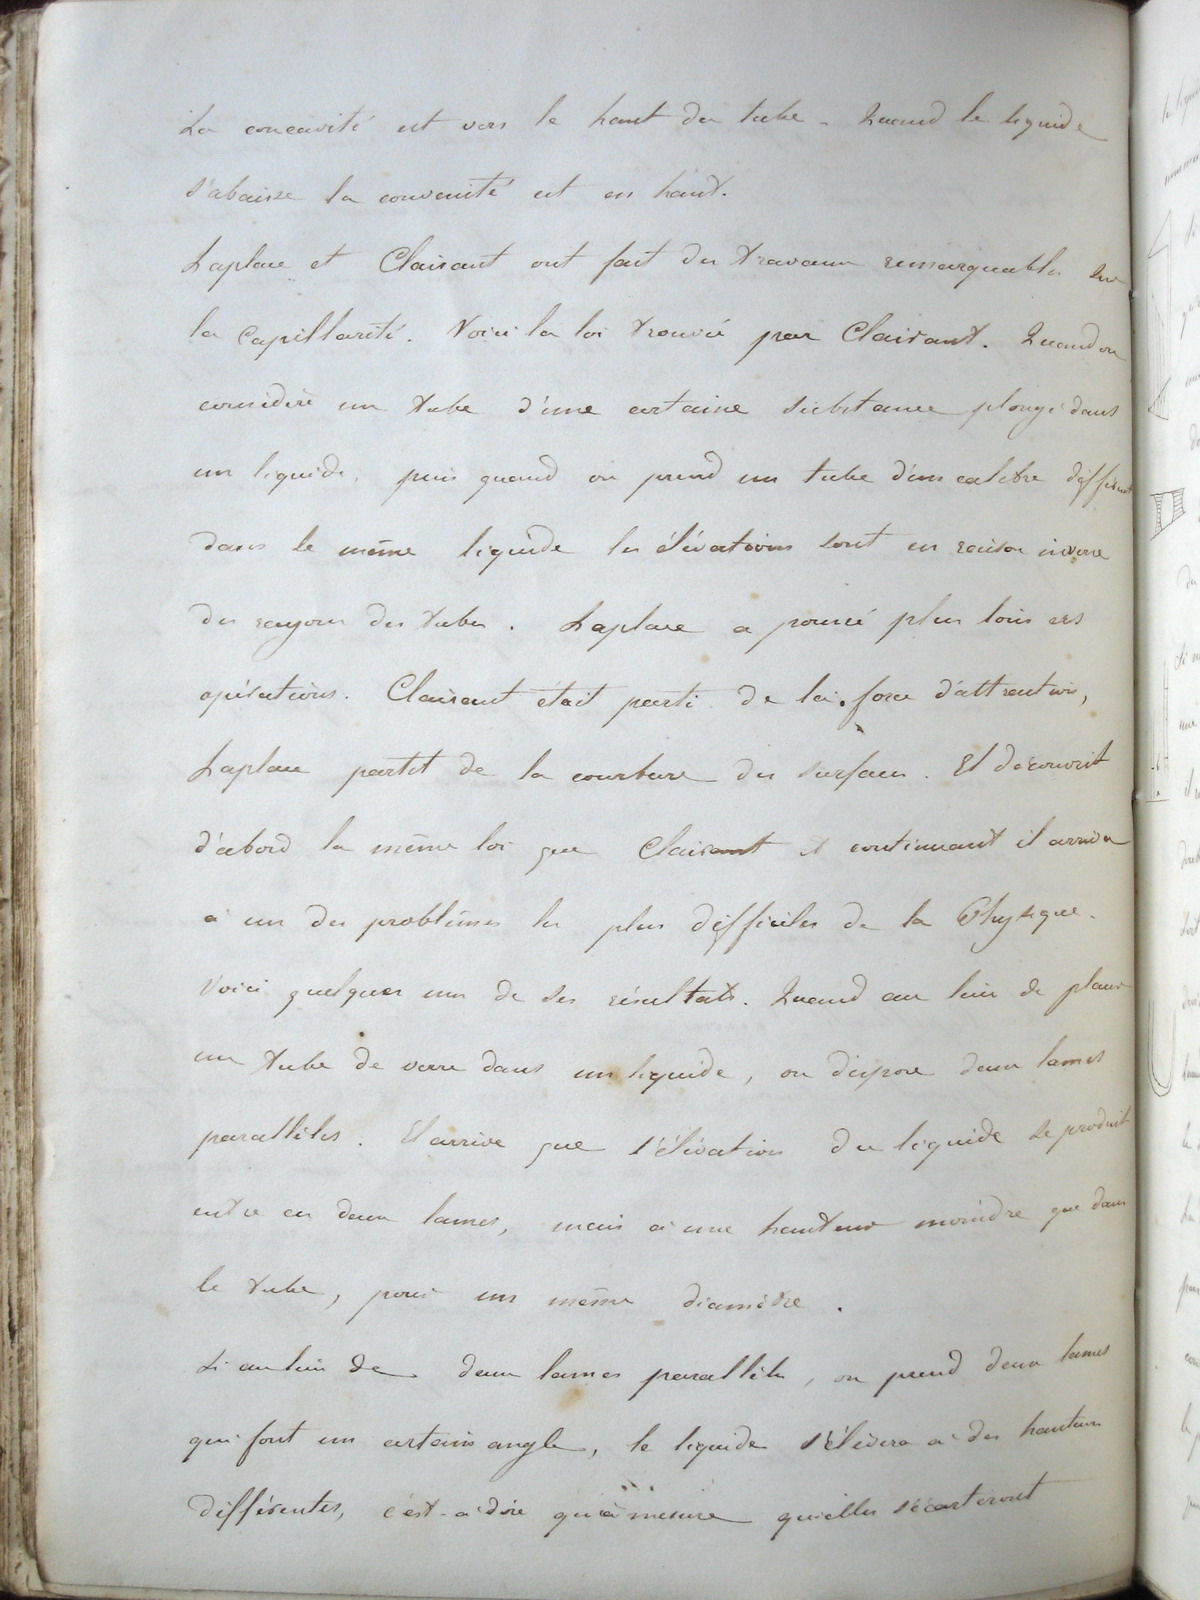 La concavité est vers le haut du tube - Quand le liquide
s'abaisse la convexité est en haut.
Laplace et Clairaut ont fait des travaux remarquables sur
la Capillarité. Voici la loi trouvée par Clairaut. Quand on
considère un tube d'une certaine substance plongé dans
un liquide, puis quand on prend un tube d'un calibre différent
dans le même liquide les élévations sont en raison inverse
des rayons des tubes. Laplace a poussé plus loin ces
opérations. Clairaut était parti de la force d'attraction,
Laplace partit de la courbure des surfaces. Il découvrit
d'abord la même loi que Clairaut et continuant il arriva
à un des problèmes les plus difficiles de la Physique.
Voici quelques uns de ses résultats. Quand au lieu de placer
un tube de verre dans un liquide, on dispose deux lames
parallèles. Il arrive que l'élévation du liquide se produit
entre ces deux lames, mais à une hauteur moindre que dans
le tube, pour un même diamètre.
Si au lieu de deux lames parallèles, on prend deux lames
qui font un certain angle, le liquide s'élèvera à des hauteurs
différentes, c'est-à-dire qu'à mesure qu'elles s'écarteront